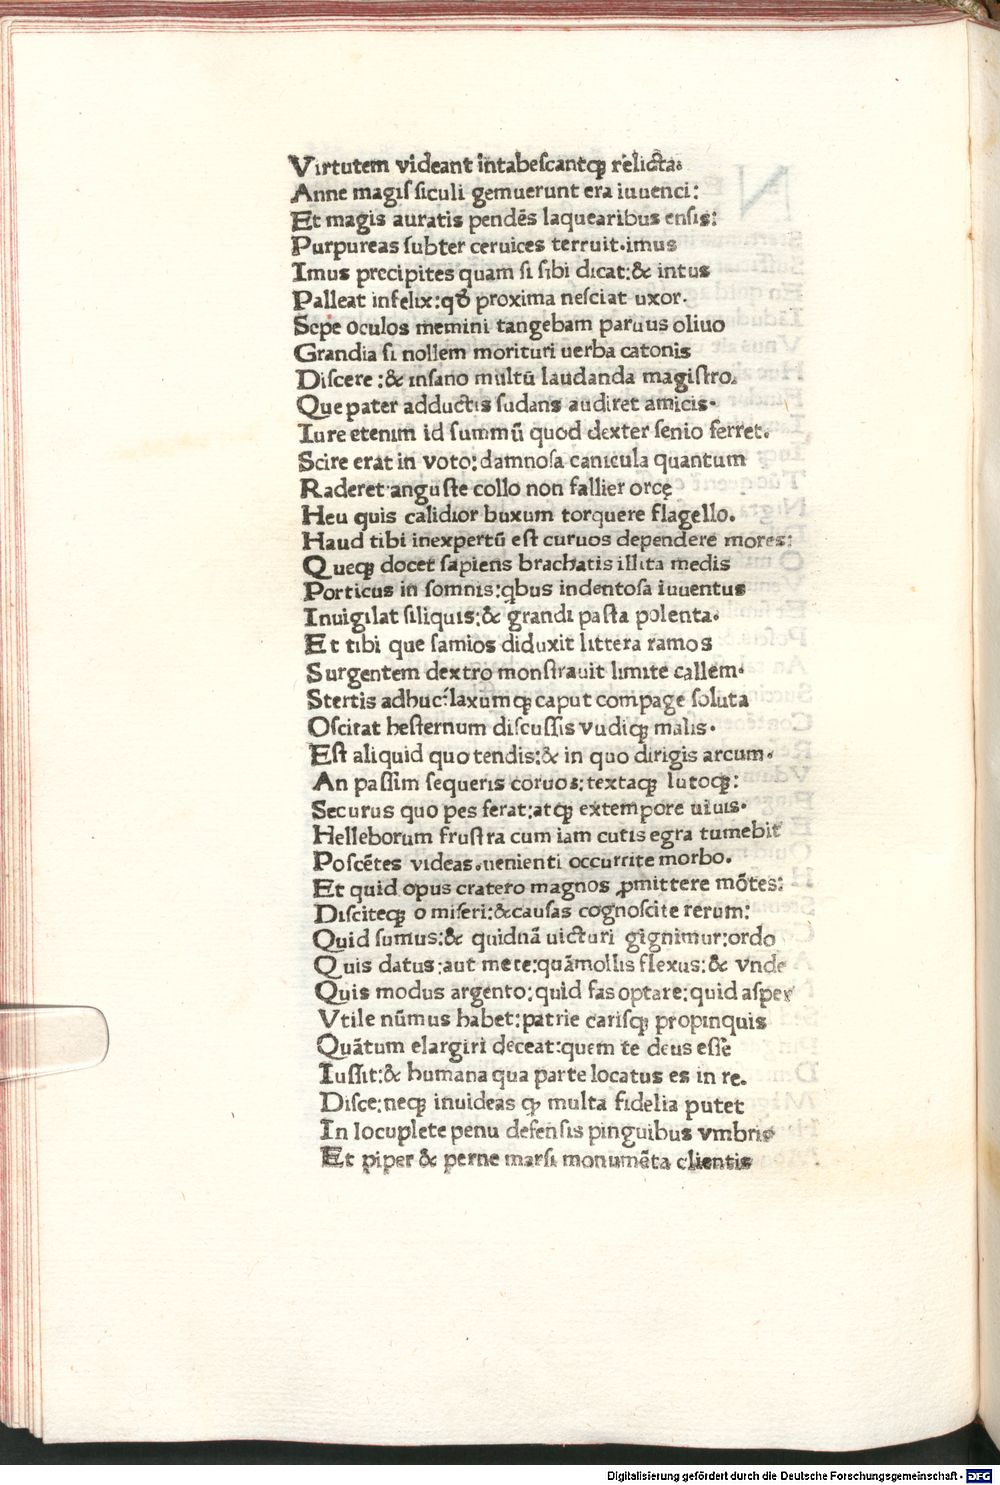 Virtutem videant intabeſcantqꝫ relicta.
Anne magiſ ſiculi gemuerunt era iuuenci:
Et magis auratis pendēs laquearibus enſis:
Purpureas ſubter ceruices terruit.imus
Imus precipites quam ſi ſibi dicat:& intus
Palleat infelix:qđ proxima neſciat uxor.
Sepe oculos memini tangebam paruus oliuo
Grandia ſi nollem morituri uerba catonis
Diſcere:& inſano multū laudanda magiſtro.
Que pater adductis ſudans audiret amicis.
Iure etenim id ſummū quod dexter ſenio ferret.
Scire erat in voto:damnoſa canicula quantum
Raderet anguſte collo non fallier orcę
Heu quis calidior buxum torquere flagello.
Haud tibi inexpertū eſt curuos dependere mores:
Queqꝫ docet ſapiens brachatis illita medis
Porticus in ſomnis:qbus indentoſa iuuentus
Inuigilat ſiliquis:& grandi paſta polenta.
Et tibi que ſamios diduxit littera ramos
Surgentem dextro monſtrauit limite callem.
Stertis adhuc:laxumqꝫ caput compage ſoluta
Oſcitat heſternum diſcuſſis vudiqꝫ malis.
Eſt aliquid quo tendis:& in quo dirigis arcum.
An paſſim ſequeris coruos:textaqꝫ lutoqꝫ:
Securus quo pes ferat:atqꝫ extempore uiuis.
Helleborum fruſtra cum iam cutis egra tumebit
Poſcētes videas.uenienti occurrite morbo.
Et quid opus cratero magnos ꝓmittere mōtes:
Diſciteqꝫ o miſeri:&cauſas cognoſcite rerum:
Quid ſumus:& quidnā uicturi gignimur:ordo
Quis datus:aut mete:quāmollis flexus:& vnde
Quis modus argento:quid fas optare:quid asper
Vtile nūmus habet:patrie cariſqꝫ propinquis
Quātum elargiri deceat:quem te deus eſſe
Iuſſit:& humana qua parte locatus es in re.
Diſce:neqꝫ inuideas ꝙ multa fidelia putet
In locuplete penu defenſis pinguibus vmbris
Et piper & perne marſi monumēta clientis
Digitalisierung gefördert durch die Deutsche Forschungsgemeinschaft - DFG